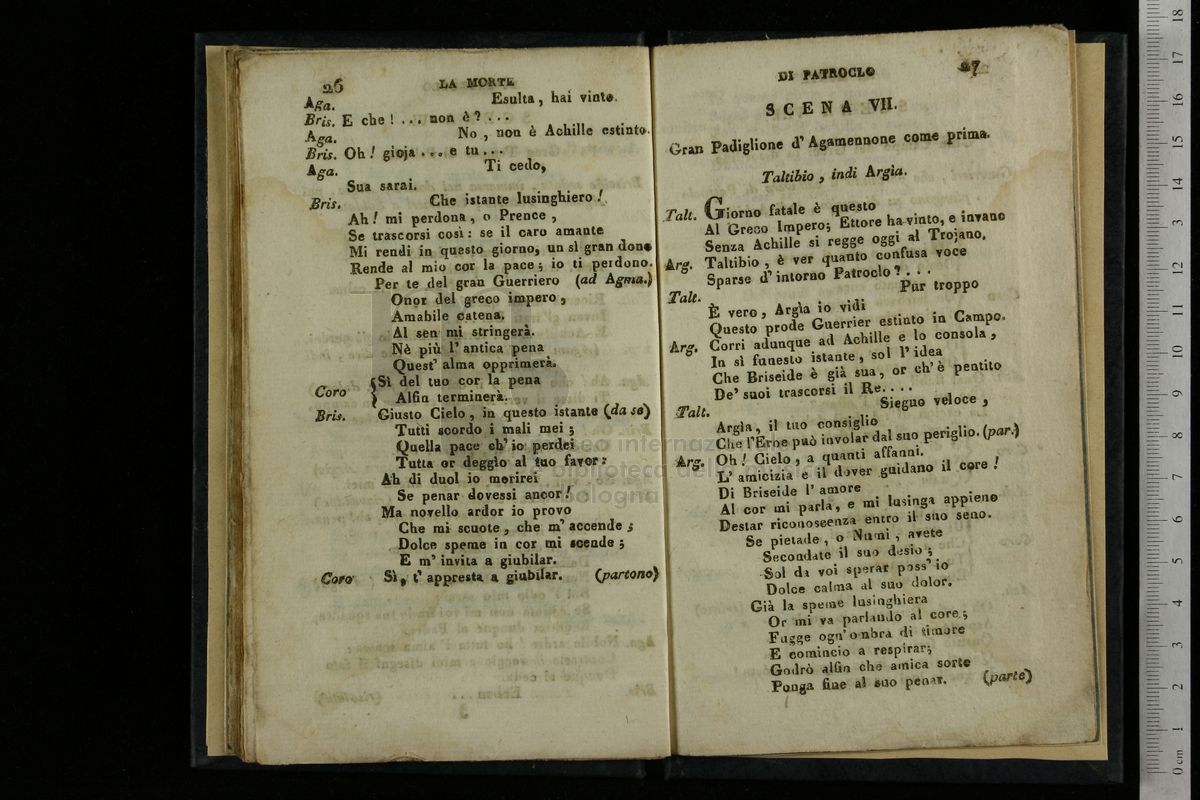 26
LA MORTE
Aga. Esulta, hai vinto.
Bris. E che! ... non è? ...
Aga. No, non è Achille estinto.
Bris. Oh! gioja ... e tu ...
Aga. Ti cedo,
Sua sarai.
Bris. Che istante lusinghiero!
Ah! mi perdona, o Prence,
Se trascorsi così: se il caro amante
Mi rendi in questo giorno, un sì gran dono
Rende al mio cor la pace; io ti perdono.
Per te del gran Guerriero (ad Agma.)
Onor del greco impero,
Amabile catena.
Al sen mi stringerà.
Nè più l'antica pena
Quest' alma opprimerà.
Coro {Sì del tuo cor la pena
Alfin terminerà.
Bris. Giusto Cielo, in questo istante (da se)
Tutti scordo i mali miei;
Quella pace ch' io perdei
Tutta or deggio al tuo favor:
Ah di duol io morirei
Se penar dovessi ancor!
Ma novello ardor io provo
Che mi scuote, che m' accende;
Dolce speme in cor mi scende;
E m' invita a giubilar.
Coro Sì, t' appresta a giubilar. (partono)
DI PATROCLO
27
SCENA VII.
Gran Padiglione d' Agamennone come prima.
Taltibio, indi Argìa.
Talt. Giorno fatale è questo
Al Greco Impero; Ettore ha vinto, e invano
Senza Achille si regge oggi al Trojano.
Arg. Taltibio, è ver quanto confusa voce
Sparse d' intorno Patroclo? ...
Talt. Pur troppo
È vero, Argìa io vidi
Questo prode Guerrier estinto in Campo.
Arg. Corri adunque ad Achille e lo consola,
In sì funesto istante, sol l' idea
Che Briseide è già sua, or ch' è pentito
De' suoi trascorsi il Re....
Talt. Sieguo veloce,
Argìa, il tuo consiglio
Che l'Eroe può involar dal suo periglio. (par.)
Arg. Oh! Cielo, a quanti affanni.
L' amicizia e il dover guidano il core!
Di Briseide l' amore
Al cor mi parla, e mi lusinga appieno
Destar riconoscenza entro il suo seno.
Se pietade, o Numi, avete
Secondate il suo desio;
Sol da voi sperar poss' io
Dolce calma al suo dolor.
Già la speme lusinghiera
Or mi va parlando al core;
Fugge ogn' ombra di timore
E comincio a respirar;
Godrò alfin che amica sorte
Ponga fine al suo penar. (parte)